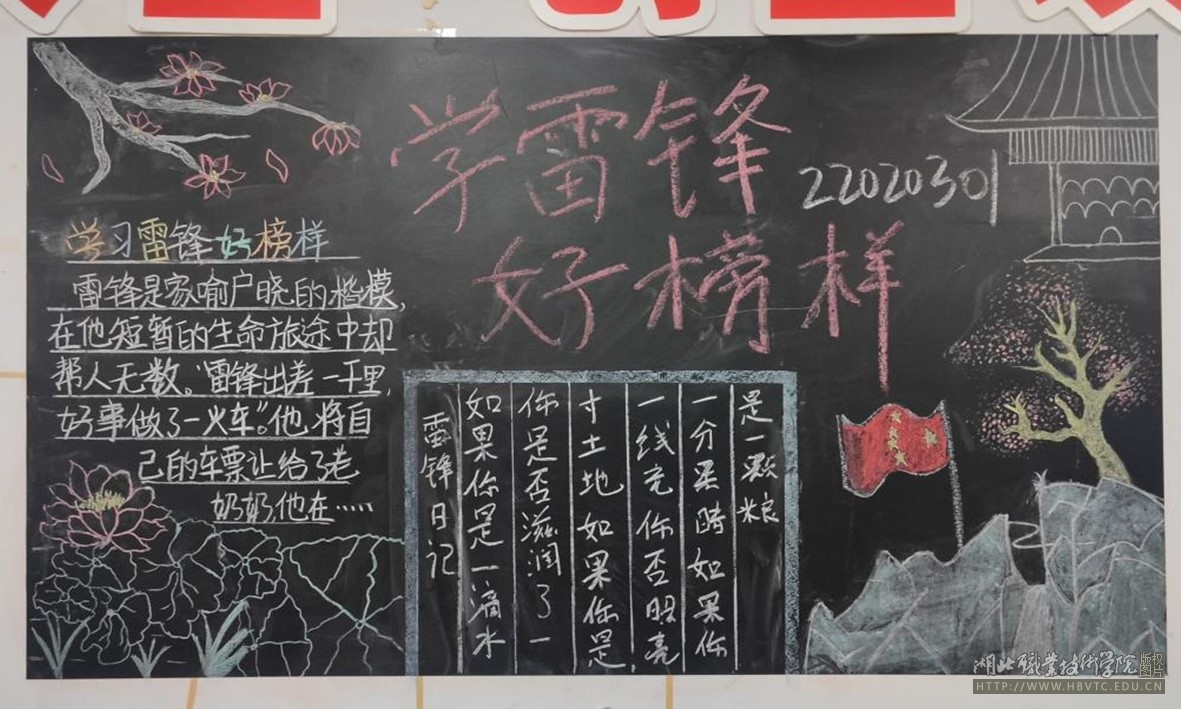 学雷锋
好榜样
22020301
学习雷锋好榜样
雷锋是家喻户晓的楷模,
在他短暂的生命旅途中却
帮人无数。“雷锋出差一千里,
好事做了一火车”。他将自
己的车票让给了老
奶奶,他在……
雷锋日记
如果你是一滴水
你是否滋润了一
寸土地如果你是
一线光你否照亮
一分黑暗如果你
是一颗粮
湖北職業技術学院
版权图片
HTTP://WWW.HBVTC.EDU.CN